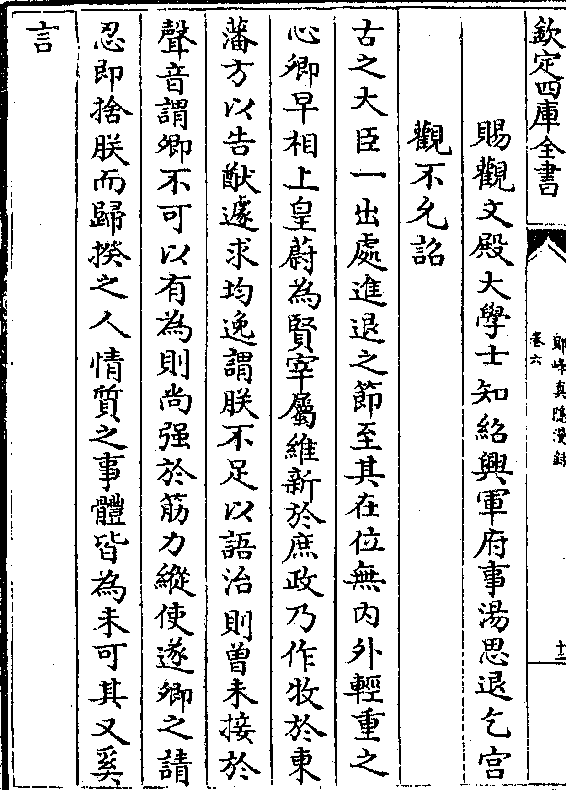 欽定四庫全書
鄮峰真隱漫錄
卷六
十三
賜觀文殿大學士知紹興軍府事湯思退乞宫
觀不允詔
古之大臣一出處進退之節至其在位無内外輕重之
心卿早相上皇蔚為賢宰屬維新於庶政乃作牧於東
藩方以告猷遽求均逸謂朕不足以語治則曾未接於
聲音謂卿不可以有為則尚强於筋力縱使遂卿之請
忍即捨朕而歸揆之人情質之事體皆為未可其又奚
言